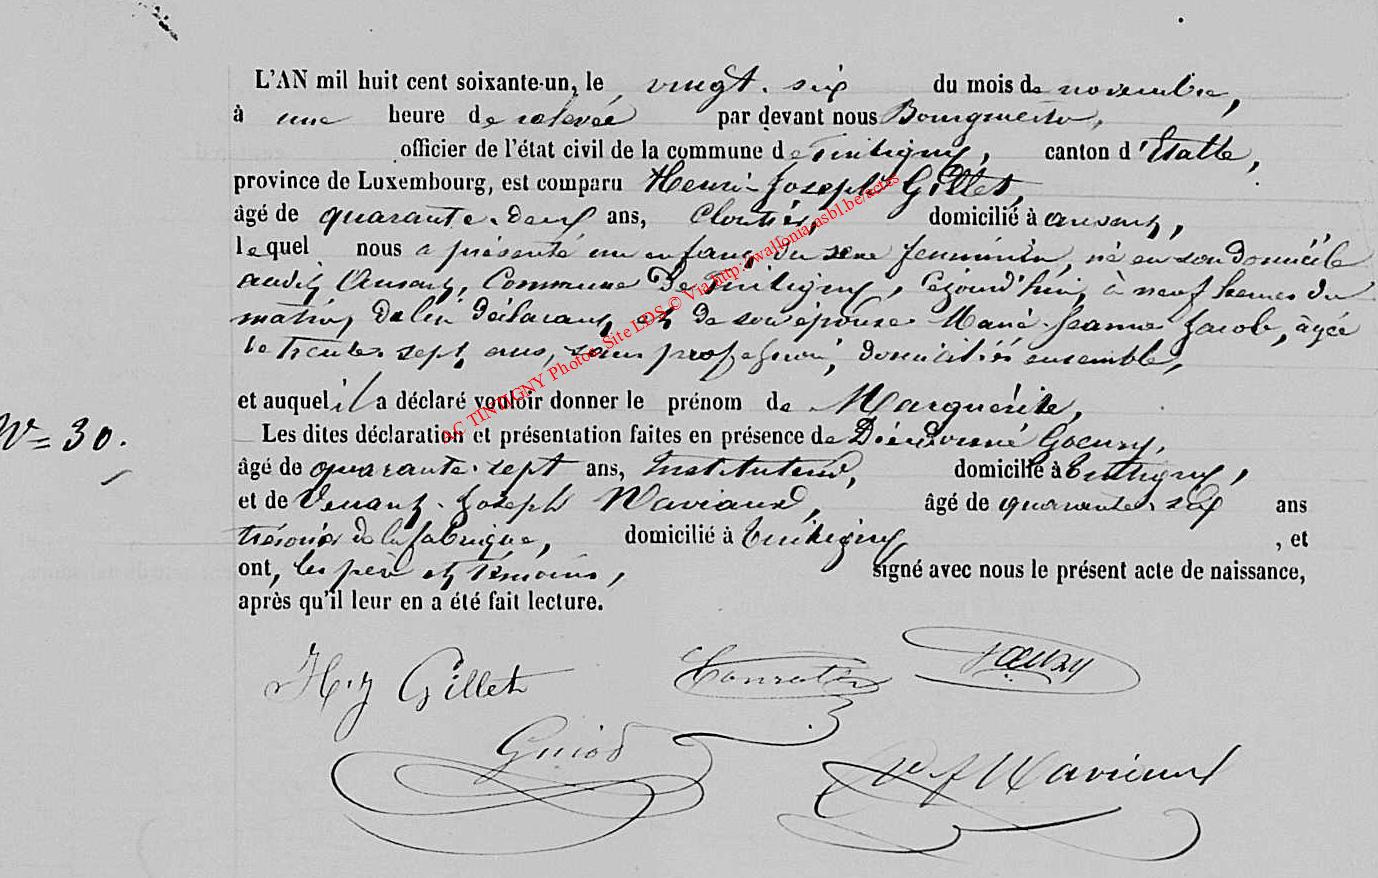 L'AN mil huit cent soixante-un, le vingt-six du mois de novembre,
à une heure de relevée par devant nous Bourgmestre,
officier de l'état civil de la commune de Tintigny, canton d'Etalle,
province de Luxembourg, est comparu Henri-Joseph Gillet,
âgé de quarante-deux ans, cloutier, domicilié à ansart,
lequel nous a présenté un enfant du sexe féminin, né en son domicile
audit Ansart, Commune De Tintigny, cejourd'hui, à neuf heures du
matin, de lui déclarant et de son épouse Marie-Jeanne Jacob, âgée
de trente-sept ans, sans profession, domiciliés ensemble,
et auquel il a déclaré vouloir donner le prénom de Marguérite,
Nº 30.
Les dites déclaration et présentation faites en présence de Dieudonné Goeury,
âgé de quarante-sept ans, Instituteur, domicilié à Tintigny,
et de Venant-Joseph Maviaux, âgé de quarante-six ans
trésorier de la fabrique, domicilié à Tintigny, et
ont, les père et témoins, signé avec nous le présent acte de naissance,
après qu'il leur en a été fait lecture.
H.J Gillet Goeury
Guiot V J Maviaux
AC TINTIGNY Photos Site LDS © Via http://wallonia-asbl.be/actes